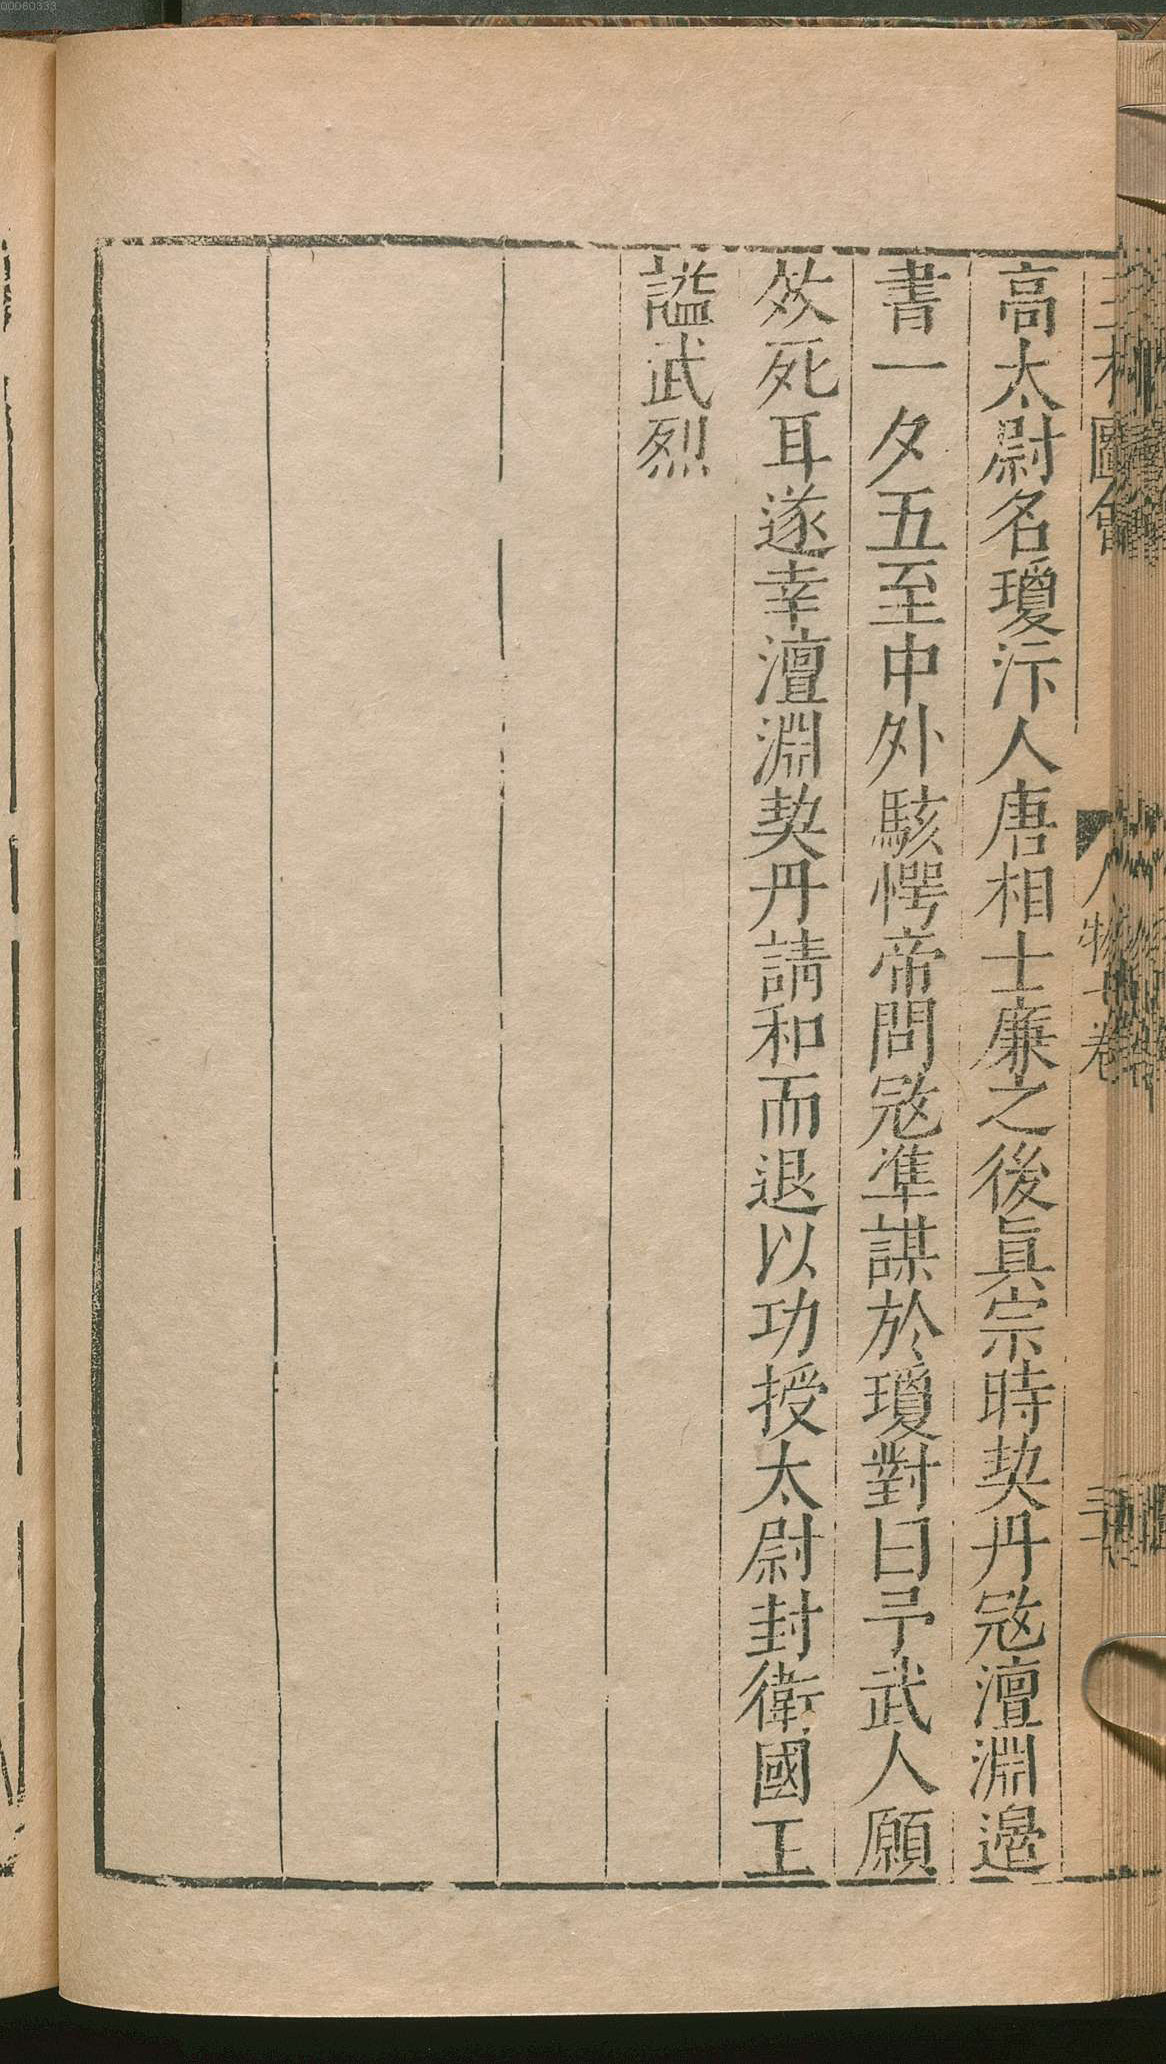 00060333
三才圖會
人物七卷
高太尉名瓊汴人唐相士廉之後眞宗時契丹宼澶淵邉
書一夕五至中外駭愕帝問宼凖謀於瓊對曰予武人願
效死耳遂幸澶淵契丹請和而退以功授太尉封衛國王
謚武烈